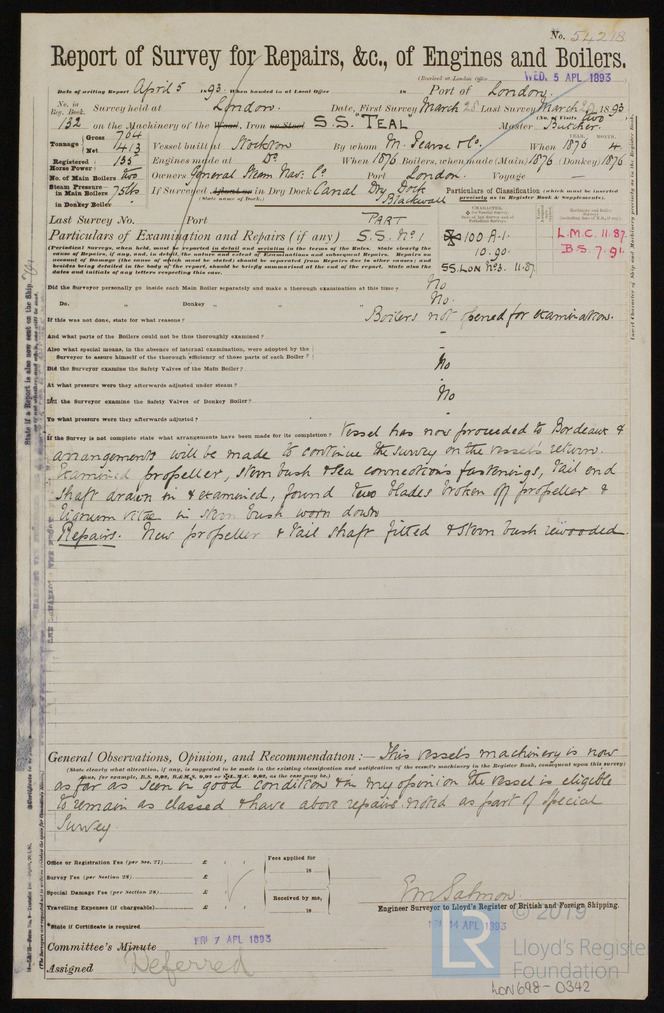 No. 54218
Report of Survey for Repairs, &c., of Engines and Boilers.
(Received at London Office WED. 5 APL 1893
Date of writing Report April 5 1893. When handed in at Local Office in Port of London.
No. in Reg. Book. Survey held at London. Date, First Survey March 28 Last Survey March 1893
(No. of Visits two)
132 on the Machinery of the Wood, Iron or Steel S.S. "TEAL" Master Butcher.
Tonnage Gross 764 Net 413 Vessel built at Stockton By whom M. Pearse & Co. When 1876 4.
YEAR. MONTH.
Registered Horse Power 135 Engines made at Do When 1876 Boilers, when made (Main) 1876 (Donkey) 1876
No. of Main Boilers two Owners General Steam Nav. Co Port London. Voyage —
Steam Pressure in Main Boilers 75 lbs If Surveyed Afloat or in Dry Dock Canal Dry Dock Blackwall
(State name of Dock.)
in Donkey Boiler
Particulars of Classification (which must be inserted precisely as in Register Book & Supplements).
Last Survey No. Port PART
Particulars of Examination and Repairs (if any) S.S. No 1
100 A.1.
10.90.
SS. LON No 3. 11.87
L.M.C. 11.87
B.S. 7.91
(Periodical Surveys, when held, must be reported in detail and seriatim in the terms of the Rules. State clearly the
cause of Repairs, if any, and, in detail, the nature and extent of Examinations and subsequent Repairs. Repairs on
account of Damage (the cause of which must be stated) should be separated from Repairs due to other causes; and
besides being detailed in the body of the report, should be briefly summarised at the end of the report. State also the
dates and initials of any letters respecting this case.)
Did the Surveyor personally go inside each Main Boiler separately and make a thorough examination at this time? No
Do. " Donkey " " " " No.
If this was not done, state for what reasons? Boilers not opened for examination.
And what parts of the Boilers could not be thus thoroughly examined? -
Also what special means, in the absence of internal examination, were adopted by the
Surveyor to assure himself of the thorough efficiency of those parts of each Boiler? -
Did the Surveyor examine the Safety Valves of the Main Boiler? No
At what pressure were they afterwards adjusted under steam? -
Did the Surveyor examine the Safety Valves of Donkey Boiler? No
To what pressure were they afterwards adjusted? -
If the Survey is not complete state what arrangements have been made for its completion? Vessel has now proceeded to Bordeaux &
arrangements will be made to continue the survey on the vessel's return.
Examined propeller, stern bush & sea connections fastenings, tail end
shaft drawn in & examined, found two blades broken off propeller &
lignum vitae in stern bush worn down
Repairs. New propeller & tail shaft fitted & stern bush rewooded.
General Observations, Opinion, and Recommendation :— This vessel's machinery is now
(State clearly what alteration, if any, is suggested to be made in the existing classification and notification of the vessel's machinery in the Register Book, consequent upon this survey)
as far as seen in good condition & in my opinion the vessel is eligible
to remain as classed & have above repairs noted as part of Special
Survey.
Office or Registration Fee (per Sec. 27) £
Survey Fee (per Section 28) £
Special Damage Fee (per Section 28) £
Travelling Expenses (if chargeable) £
Fees applied for
18
Received by me,
18
E M Salmon.
Engineer Surveyor to Lloyd's Register of British and Foreign Shipping.
*State if Certificate is required
FRI 7 APL 1893
FRI 14 APL 1893
Committee's Minute
Assigned Deferred
© 2019
LR
Lloyd's Register
Foundation
LON698-0342